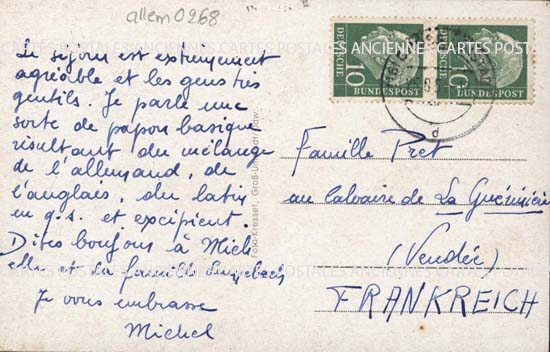 allem 0268
Le séjour est extrêmement
agréable et les gens très
gentils. Je parle une
sorte de papou basique
résultant du mélange
de l'allemand, de
l'anglais, du latin
en q.s. et excipient.
Dites bonjour à Mich
elle et la famille
Je vous embrasse
Michel
Foto-Kressel, Groß-
DEUTSCHE
10
BUNDESPOST
DEUTSCHE
10
BUNDESPOST
d
Famille Pret
au calvaire de La Guérinière
(Vendée)
FRANKREICH
CARTES POSTALES ANCIENNES CARTES POSTALES ANCIENNES CARTES POSTALES